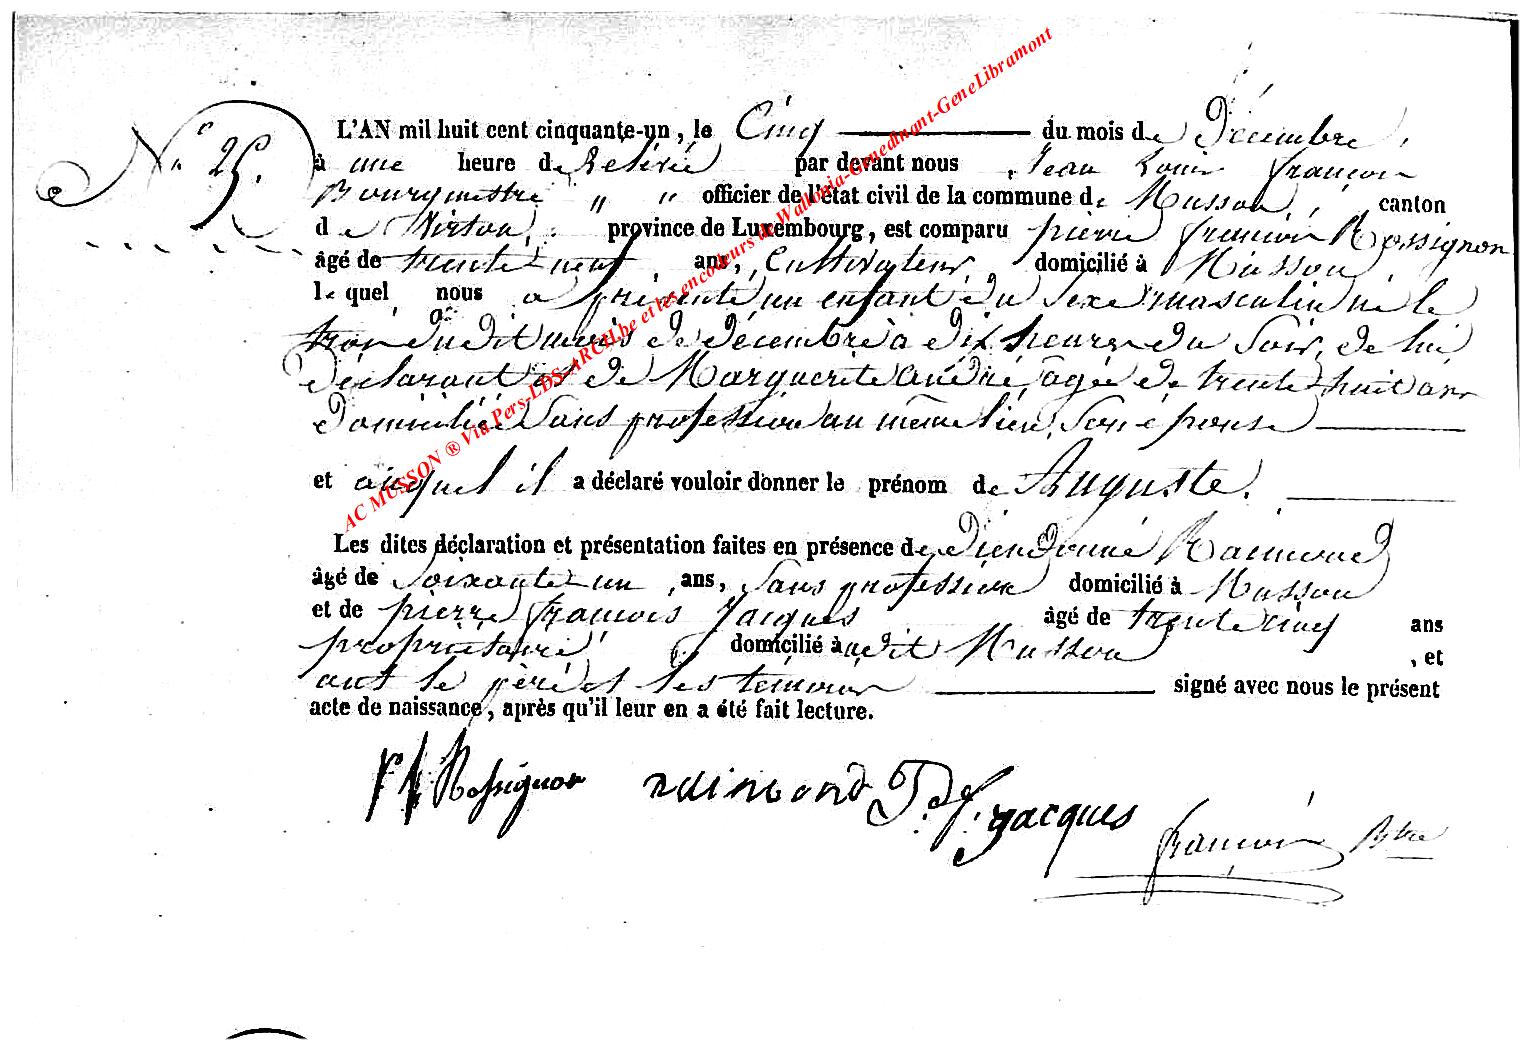 N° 25.
L'AN mil huit cent cinquante-un, le Cinq du mois de Décembre,
à une heure de Relevée par devant nous Jean Louis françois
Bourgmestre " " officier de l'état civil de la commune de Musson, canton
de Virton, province de Luxembourg, est comparu pierre françois Rossignon
âgé de trente neuf ans, Cultivateur, domicilié à Musson
lequel nous a présenté un enfant du Sexe masculin né le
trois du dit mois de décembre à dix heures du Soir, de lui
déclarant et de Marguerite andré, agée de trente huit ans
domiciliée Sans profession au même lieu, Son épouse
et auquel il a déclaré vouloir donner le prénom de Auguste.
Les dites déclaration et présentation faites en présence de dieudonné Raimond
âgé de Soixante un ans, Sans profession domicilié à Musson
et de pierre françois Jacques âgé de trente cinq ans
propriétaire domicilié à dit Musson, et
ont le père et les témoins signé avec nous le présent
acte de naissance, après qu'il leur en a été fait lecture.
Rossignon raimond P. f. jacques
françois Btre
AC MUSSON ® Via Pers-LDS-ARCH.be et les encodeurs de Wallonia-Genedinant-GeneLibramont